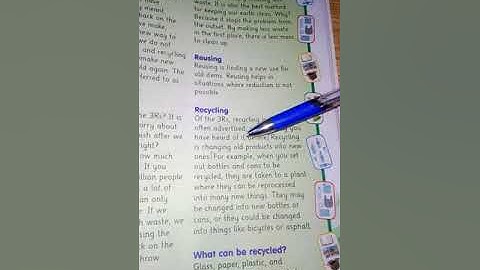 have
means
back on the
we make
new way to
we do not
and recycling
make new
ld again. The
ferred to as
3Rs? It is
orry about
ash after we
right?
how much
If you
illion people
a lot of
an only
If we
h waste, we
sing the
ck on the
throw
waste. It is also the best method
for keeping our earth clean. Why?
Because it stops the problem from
the outset. By making less waste
in the first place, there is less mess
to clean up.
Reusing
Reusing is finding a new use for
old items. Reusing helps in
situations where reduction is not
possible.
Recycling
Of the 3Rs, recycling is
often advertised,
have heard of it before. Recycling
is changing old products into new
ones. For example, when you set
out bottles and cans to be
recycled, they are taken to a plant
where they can be reprocessed
into many new things. They may
be changed into new bottles or
cans, or they could be changed
into things like bicycles or asphalt.
What can be recycled?
Glass, paper, plastic, and